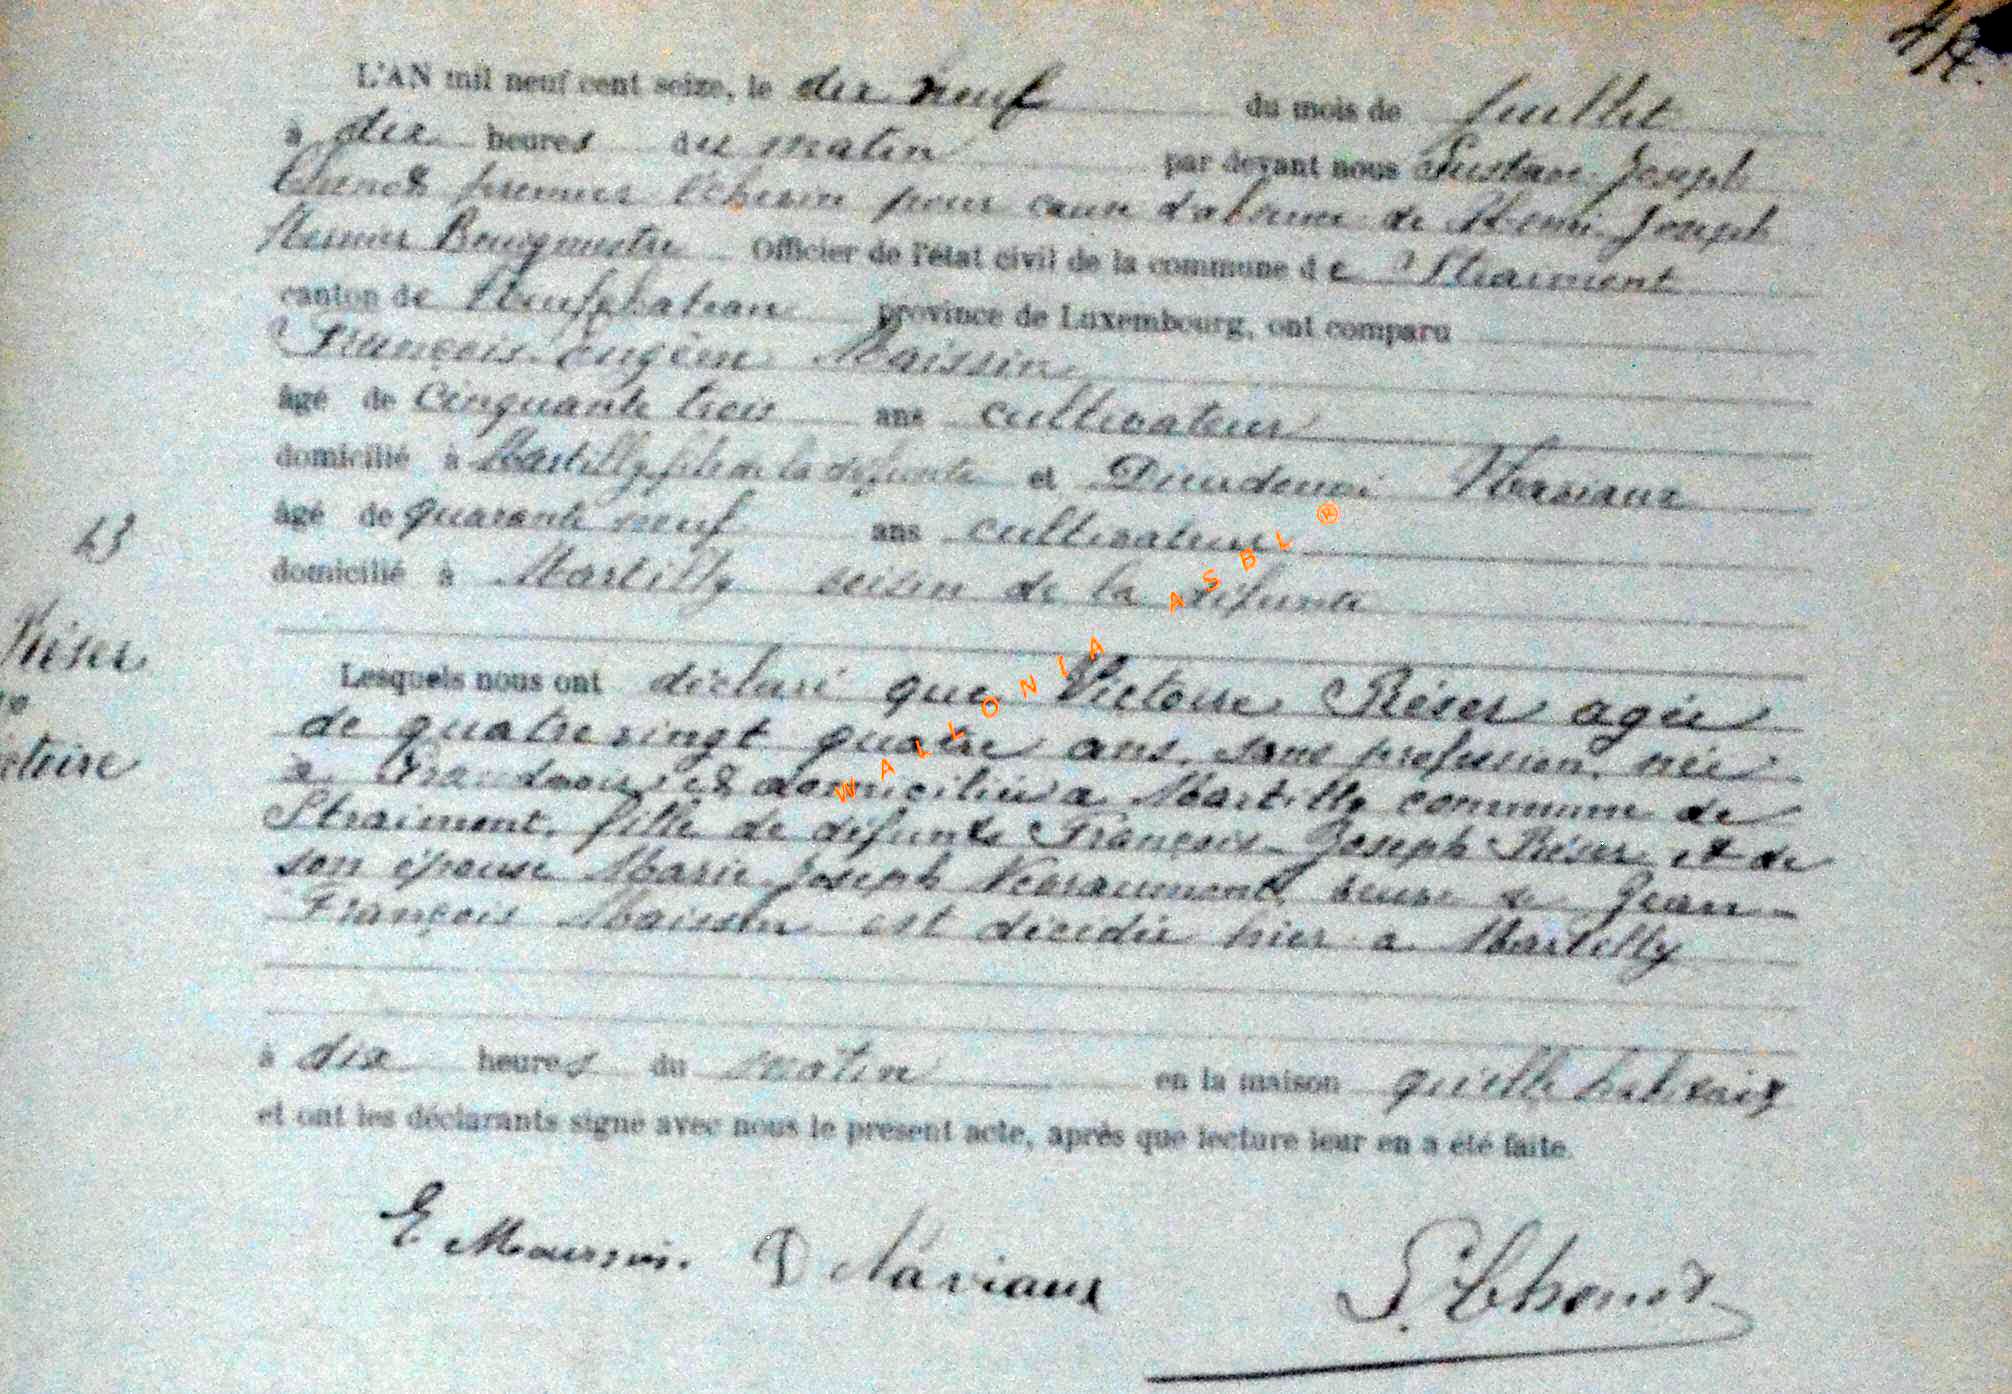 L'AN mil neuf cent seize, le dix neuf du mois de Juillet
à dix heures du matin par devant nous Gustave Joseph
premier Echevin pour cause d'absence de Henri Joseph
Bourgmestre Officier de l'état civil de la commune de Straimont
canton de Neufchateau province de Luxembourg, ont comparu
François Eugène Maissin
âgé de Cinquante trois ans cultivateur
domicilié à Martilly fils de la défunte et Dieudonné Naviaux
âgé de quarante neuf ans cultivateur
domicilié à Martilly voisin de la défunte
43
Réser
Lesquels nous ont déclaré que Victoire Réser agée
de quatre vingt quatre ans, sans profession, née
à et domiciliée à Martilly commune de
Straimont, fille de défunts François-Joseph Réser et de
son épouse Marie Joseph veuve de Jean-
François Maissin est décédée hier à Martilly
à dix heures du matin en la maison qu'elle habitait
et ont les déclarants signé avec nous le présent acte, après que lecture leur en a été faite.
E Maissin. D Naviaux
WALLONIA ASBL ®